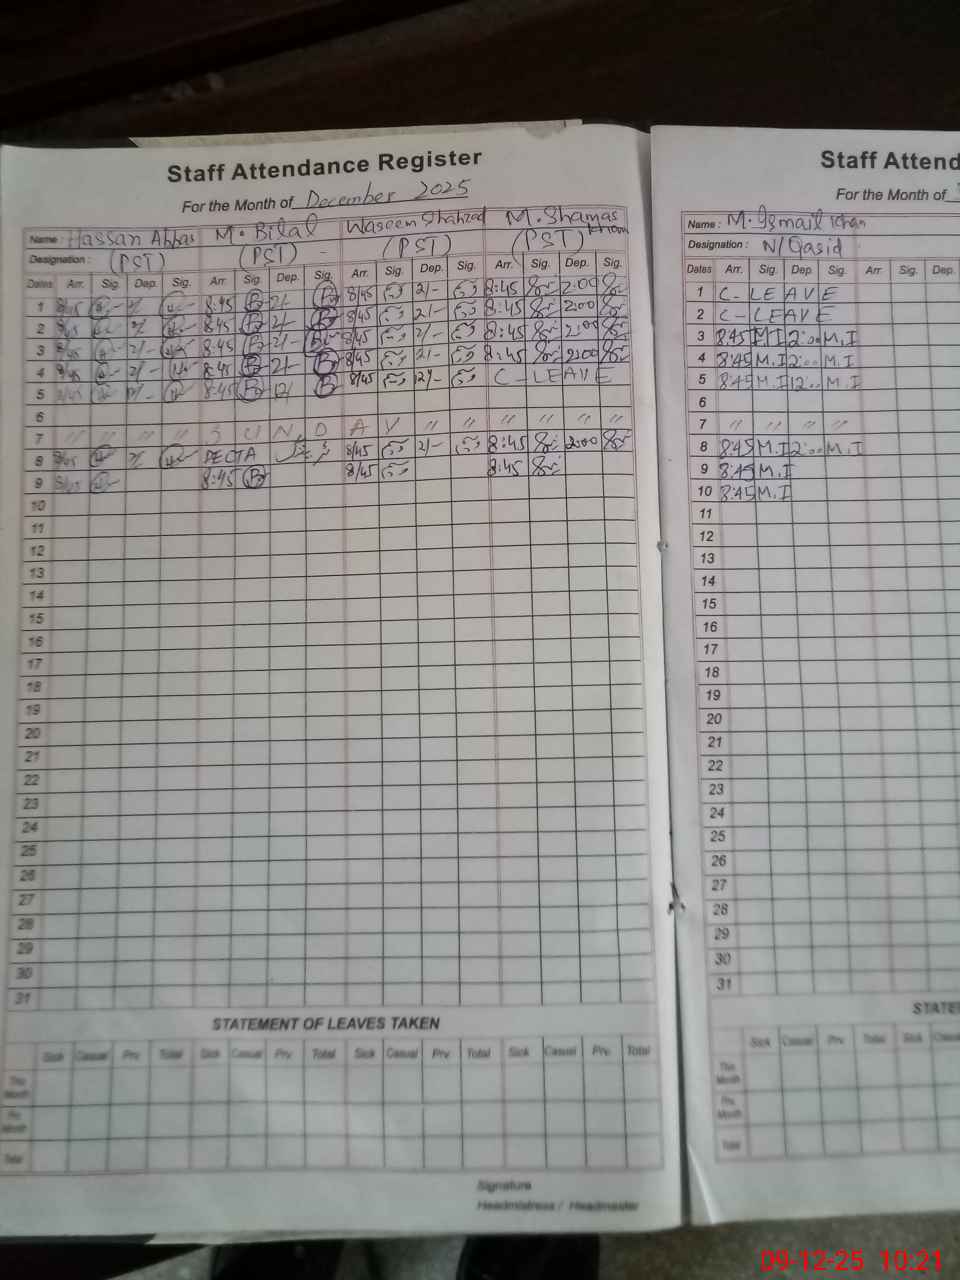 Staff Attendance Register
For the Month of December 2025
Name : Hassan Abbas M. Bilal Waseem Shahzad M. Shamas Khan
Designation : (PST) (PST) - (PST) (PST)
Dates Arr. Sig. Dep. Sig. Arr. Sig. Dep. Sig. Arr. Sig. Dep. Sig. Arr. Sig. Dep. Sig.
1 8/45 2/- 8:45 B 2/- B 8/45 2/- 8:45 2:00
2 8/45 2/- 8:45 B 2/- B 8/45 2/- 8:45 2:00
3 8/45 2/- 8:45 B 2/- B 8/45 2/- 8:45 2:00
4 8/45 2/- 8:45 B 2/- B 8/45 2/- 8:45 2:00
5 8/45 12/- 8:45 B 12/ B 8/45 12/- C - LEAVE
6
7 " " " " S U N D A Y " " " " "
8 8/45 2/- 8/45 2/- 8:45 2:00
9 8/45 8:45 B 8/45 8:45
10
11
12
13
14
15
16
17
18
19
20
21
22
23
24
25
26
27
28
29
30
31
STATEMENT OF LEAVES TAKEN
Sick Casual Prv. Total Sick Casual Prv. Total Sick Casual Prv. Total Sick Casual Prv. Total
This Month
Prv. Month
Total
Signature
Headmistress / Headmaster
Staff Attend
For the Month of
Name : M. Ismail Khan
Designation : N/Qasid
Dates Arr. Sig. Dep. Sig. Arr. Sig. Dep.
1 C - LEAVE
2 C - LEAVE
3 8:45 M.I 2:00 M.I
4 8:45 M.I 2:00 M.I
5 8:45 M.I 12:00 M.I
6
7 " " " "
8 8:45 M.I 2:00 M.I
9 8:45 M.I
10 8:45 M.I
11
12
13
14
15
16
17
18
19
20
21
22
23
24
25
26
27
28
29
30
31
STATE
Sick Casual Prv. Total Sick
This Month
Prv. Month
Total
09-12-25 10:21